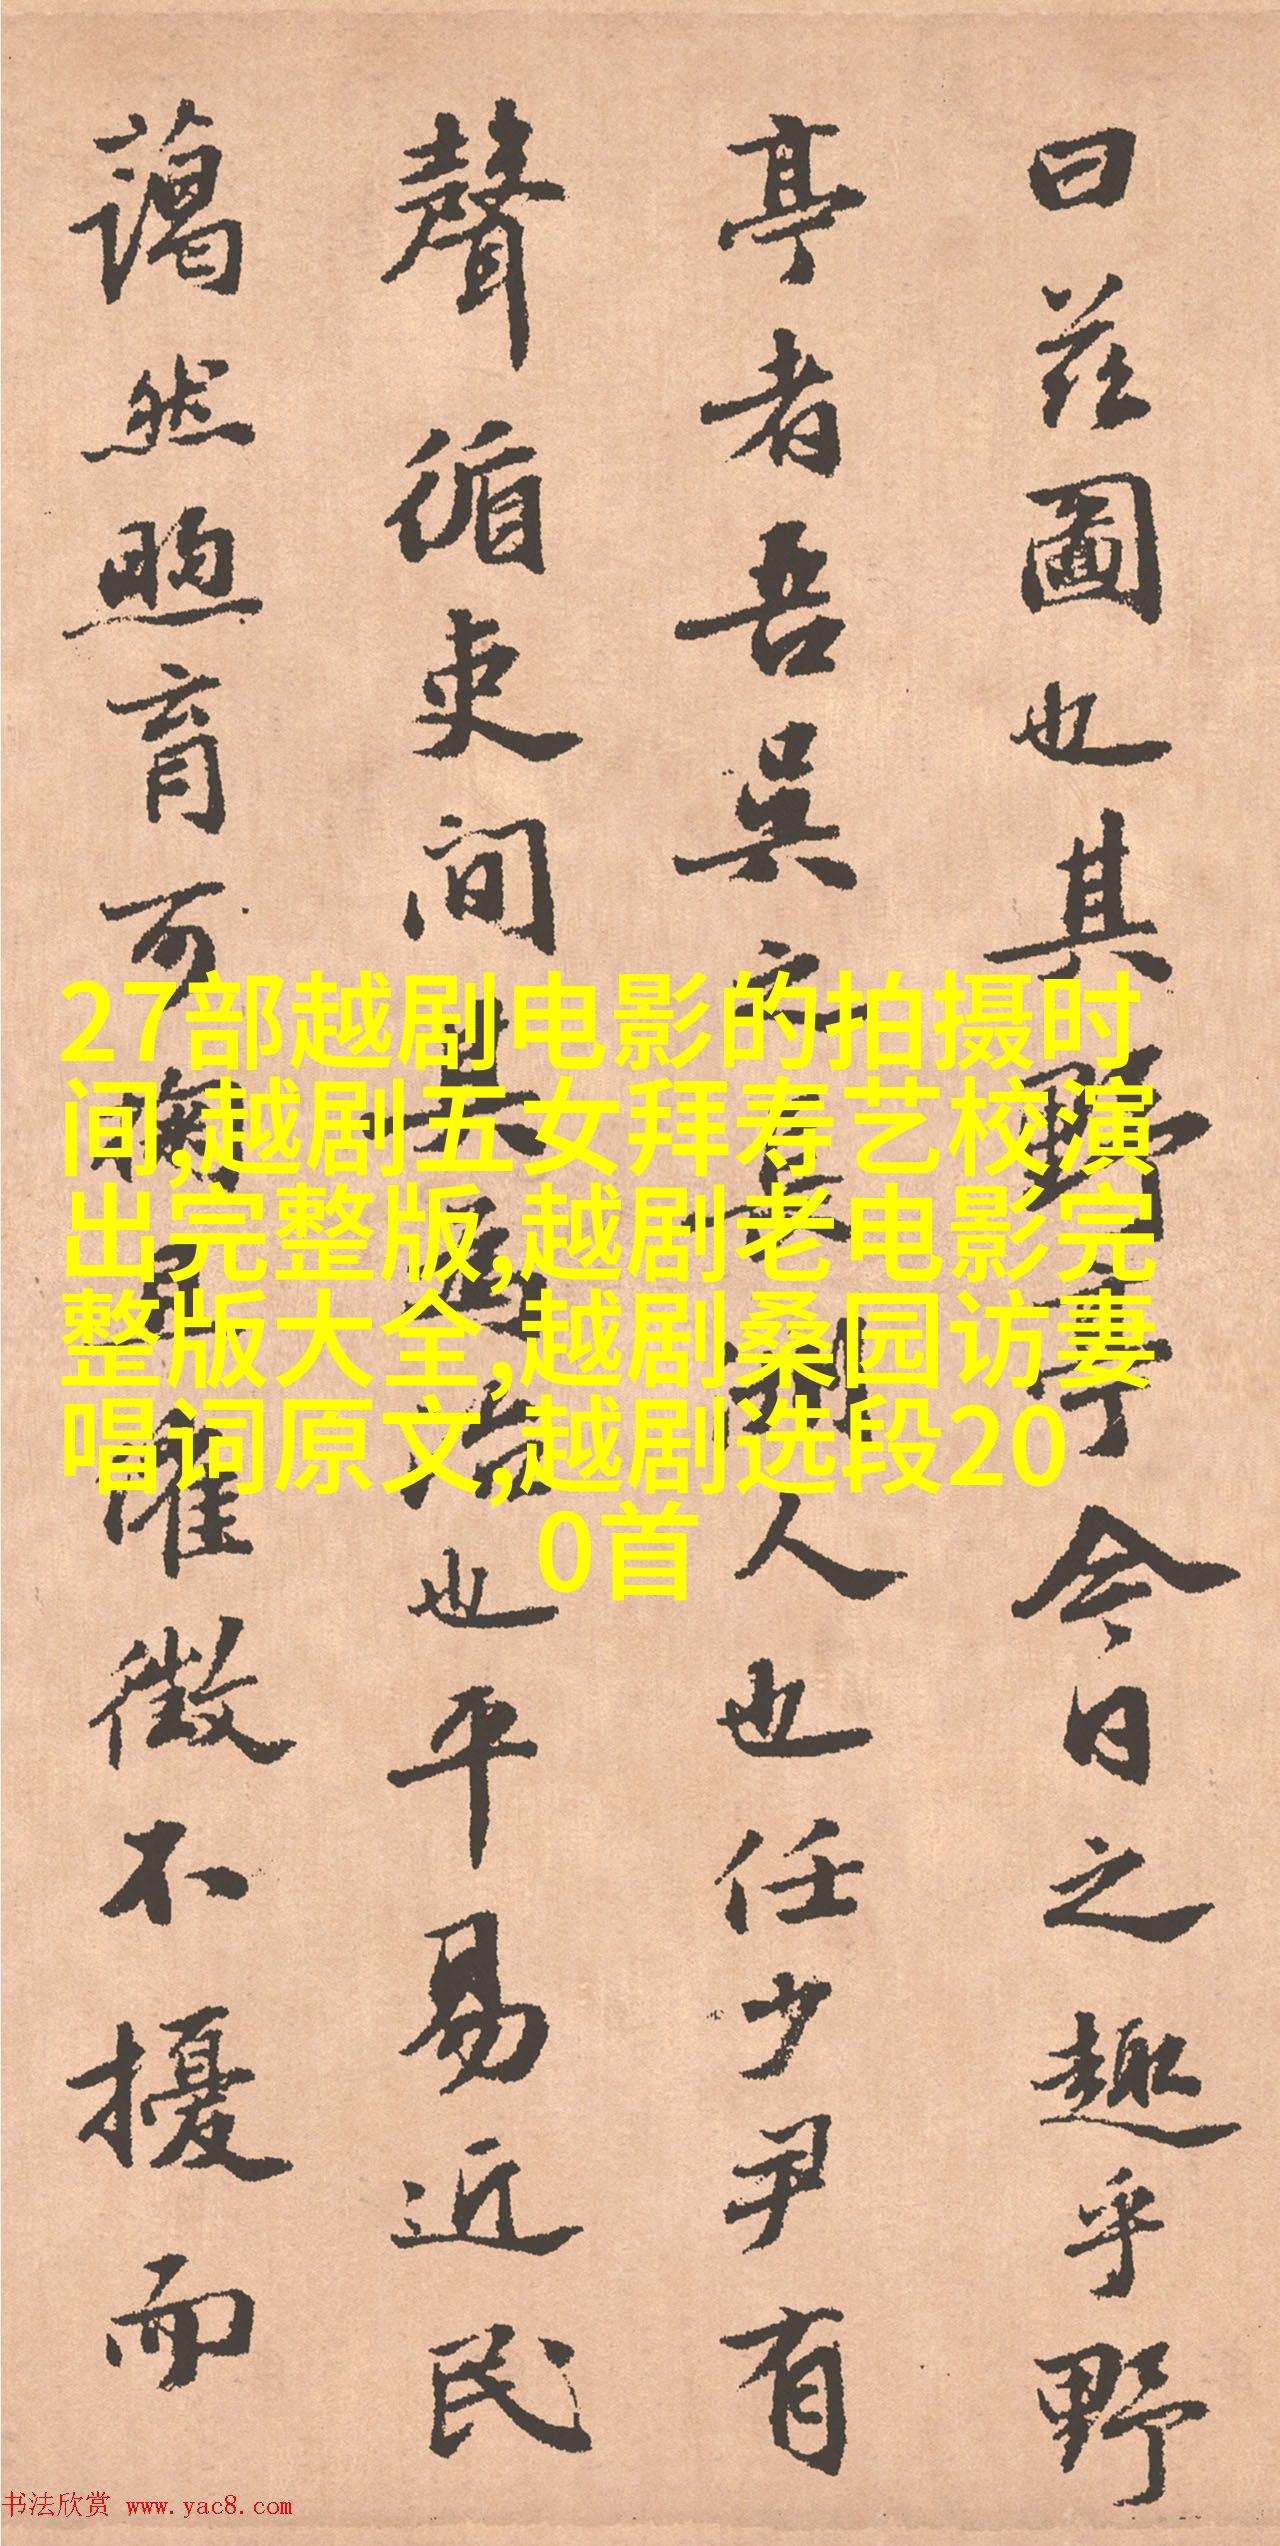 曰茲圖也其野亭今日之趣乎野
亭者吾吴之 人也任少尹有
聲循吏间其 也平易近民
藹然煦育可 催徵不擾而
27部越剧电影的拍摄时
间,越剧五女拜寿艺校演
出完整版,越剧老电影完
整版大全,越剧桑园访妻
唱词原文,越剧选段20
0首
书法欣赏 www.yac8.com